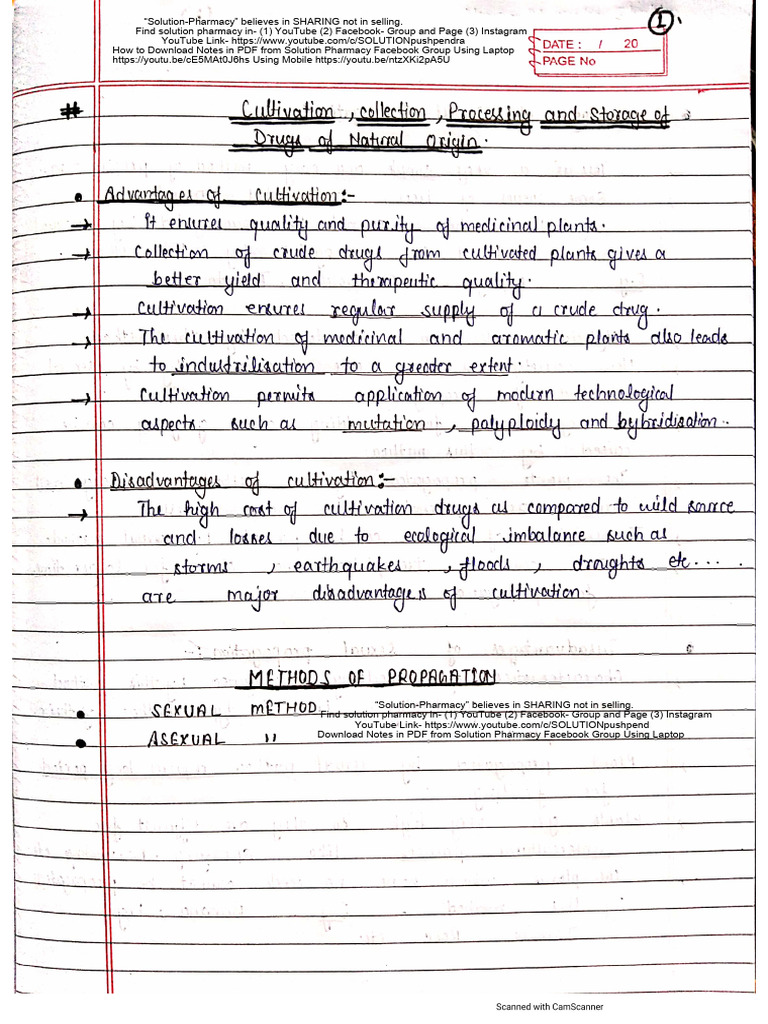 "Solution-Pharmacy" believes in SHARING not in selling.
Find solution pharmacy in- (1) YouTube (2) Facebook- Group and Page (3) Instagram
YouTube Link- https://www.youtube.com/c/SOLUTIONpushpendra
How to Download Notes in PDF from Solution Pharmacy Facebook Group Using Laptop
https://youtu.be/cE5MAt0J6hs Using Mobile https://youtu.be/ntzXKi2pA5U
1
DATE : / 20
PAGE No
# Cultivation , collection , Processing and Storage of
Drugs of Natural Origin.
• Advantages of cultivation:-
→ It ensures quality and purity of medicinal plants.
→ Collection of crude drugs from cultivated plants gives a
better yield and therapeutic quality.
→ Cultivation ensures regular supply of a crude drug.
→ The cultivation of medicinal and aromatic plants also leads
to industrilisation to a greater extent.
→ Cultivation permits application of modern technological
aspects such as mutation , polyploidy and hybridisation.
• Disadvantages of cultivation:-
→ The high cost of cultivation drugs as compared to wild source
and losses due to ecological imbalance such as
storms , earthquakes , floods , droughts etc....
are major disadvantages of cultivation.
METHODS OF PROPAGATION
• SEXUAL METHOD
• ASEXUAL "
"Solution-Pharmacy" believes in SHARING not in selling.
Find solution pharmacy in- (1) YouTube (2) Facebook- Group and Page (3) Instagram
YouTube Link- https://www.youtube.com/c/SOLUTIONpushpend
Download Notes in PDF from Solution Pharmacy Facebook Group Using Laptop
Scanned with CamScanner